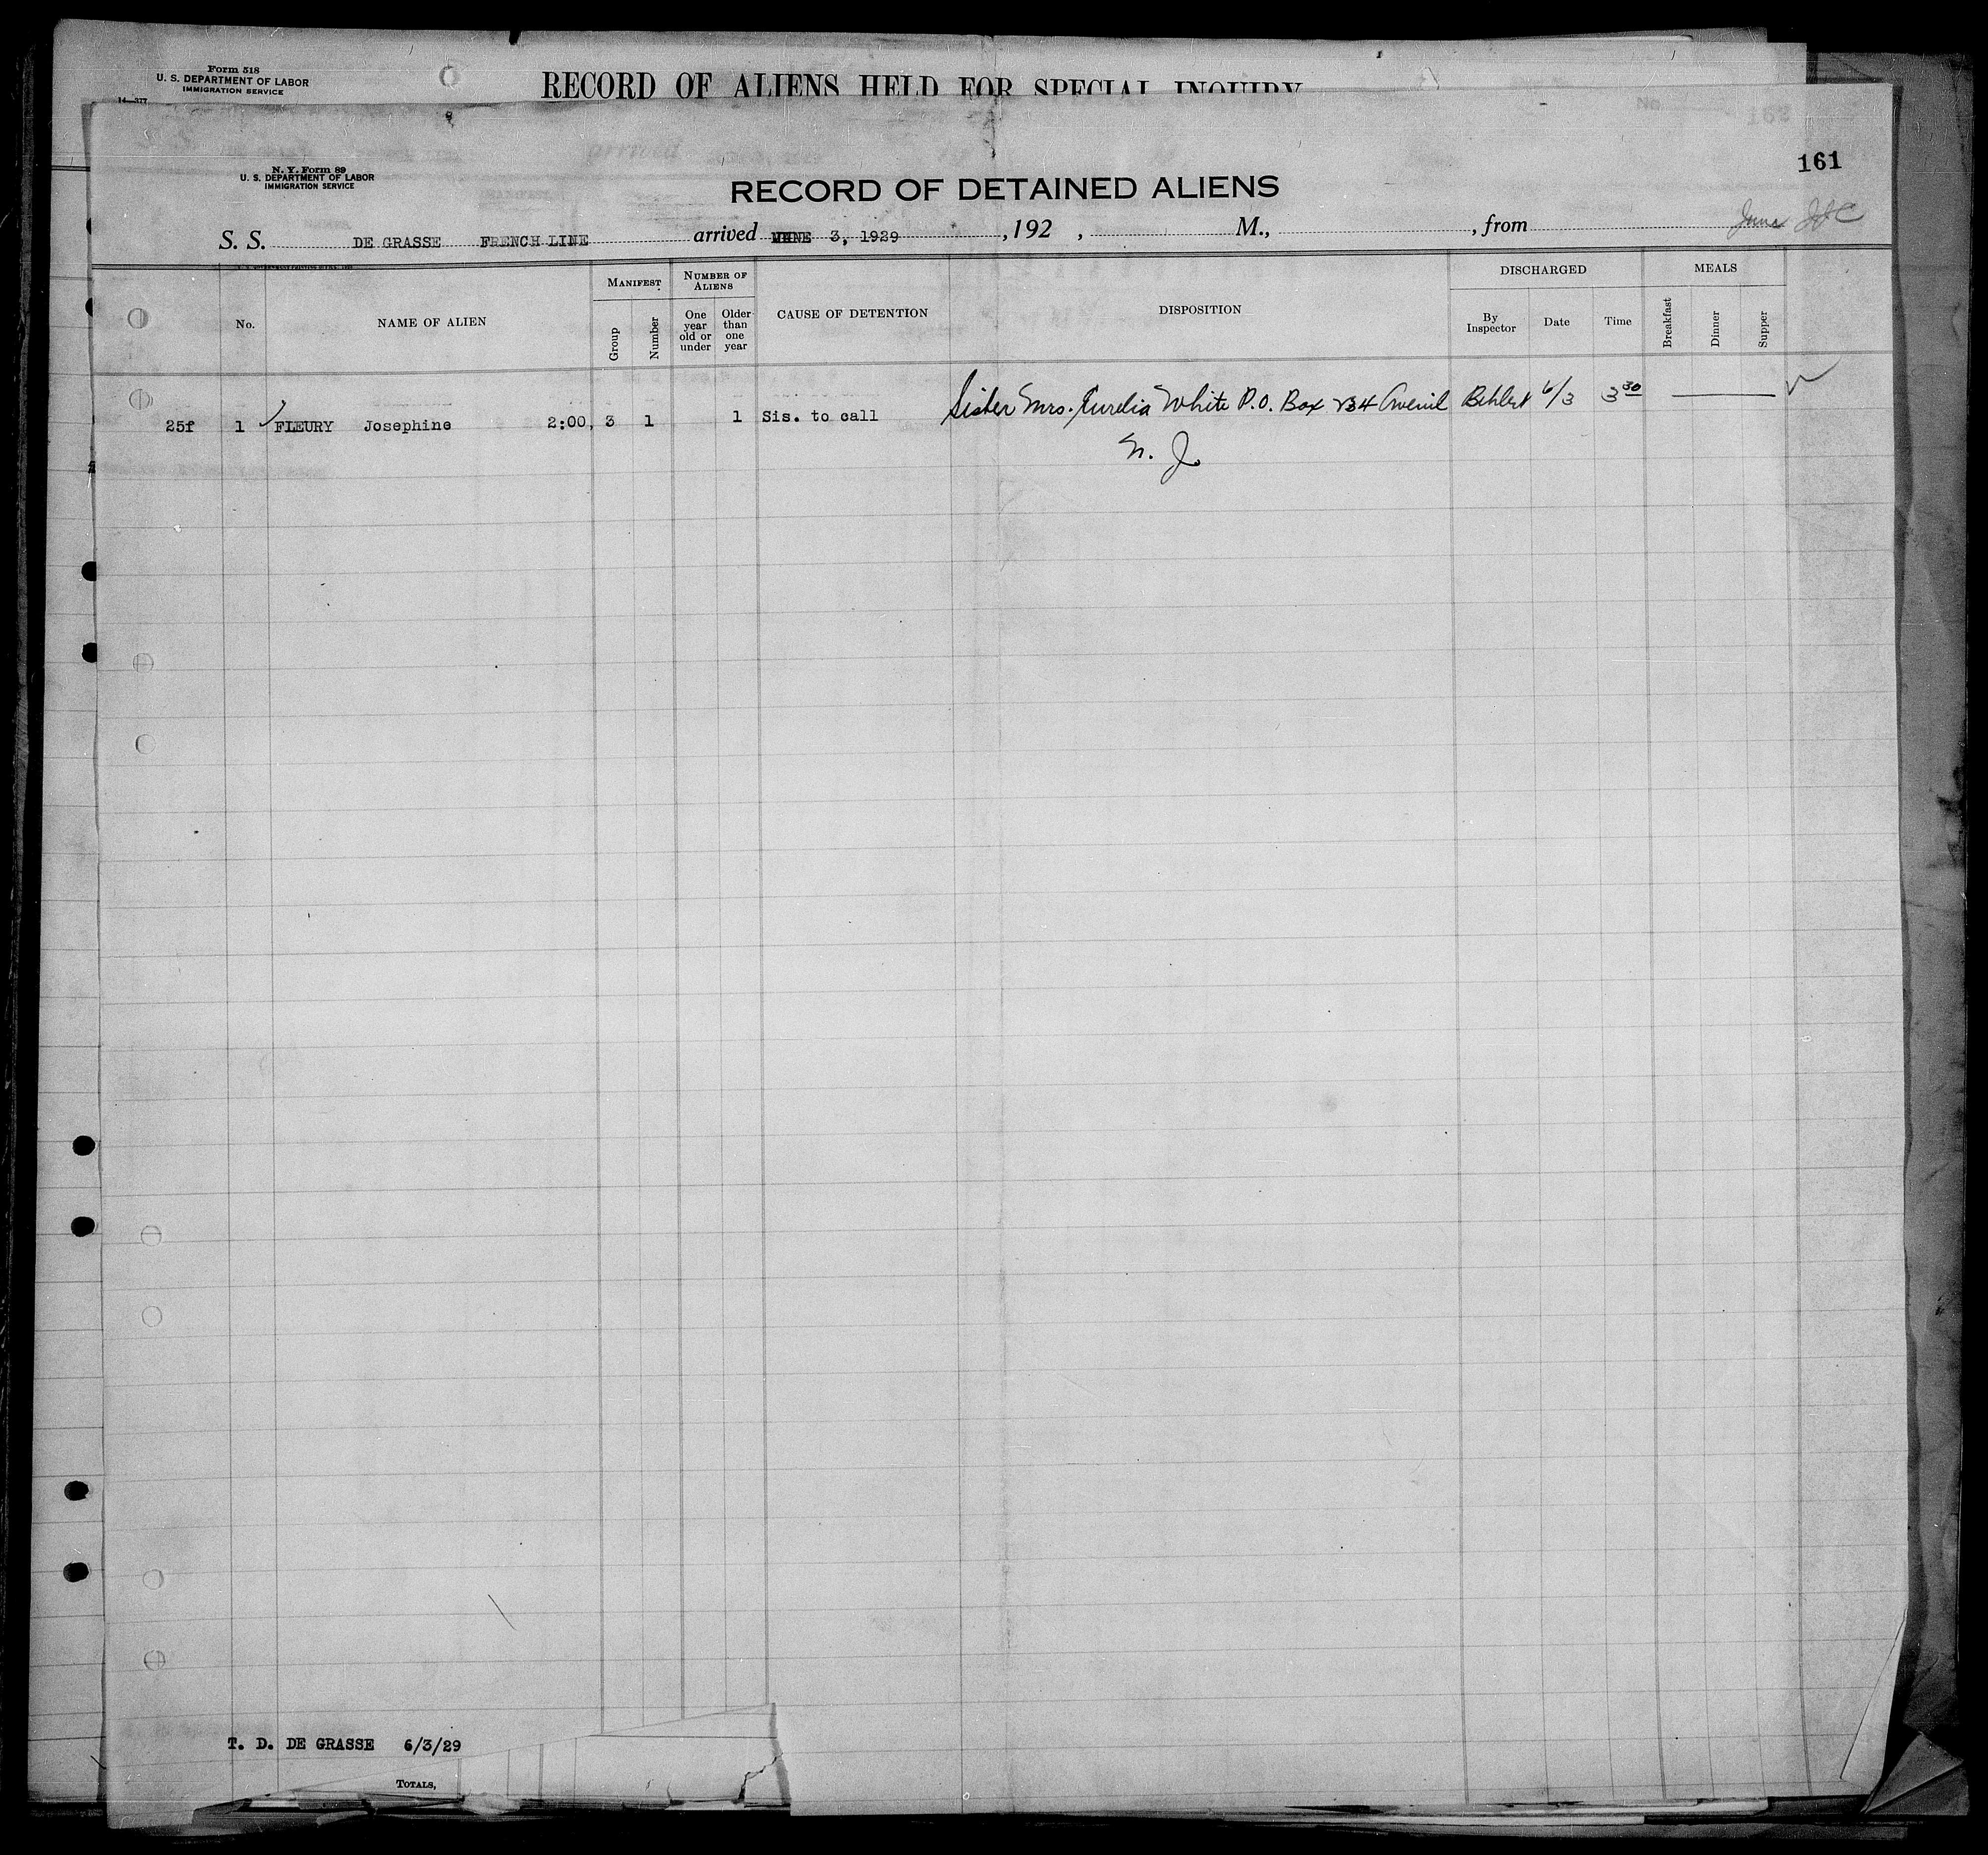 Form 518
U. S. DEPARTMENT OF LABOR
IMMIGRATION SERVICE
14—377
RECORD OF ALIENS HELD FOR SPECIAL INQUIRY
No. 162
161
N. Y. Form 89
U. S. DEPARTMENT OF LABOR
IMMIGRATION SERVICE
RECORD OF DETAINED ALIENS
S. S. DE GRASSE FRENCH LINE arrived JUNE 3, 1929 , 192 , M., , from
No. NAME OF ALIEN MANIFEST Group Number NUMBER OF ALIENS One year old or under Older than one year CAUSE OF DETENTION DISPOSITION DISCHARGED By Inspector Date Time MEALS Breakfast Dinner Supper
25f 1 FLEURY Josephine 2:00, 3 1 1 Sis. to call Sister Mrs. Aurelia White P.O. Box 234 Avenil 6/3 3 30
N. J.
T. D. DE GRASSE 6/3/29
TOTALS,